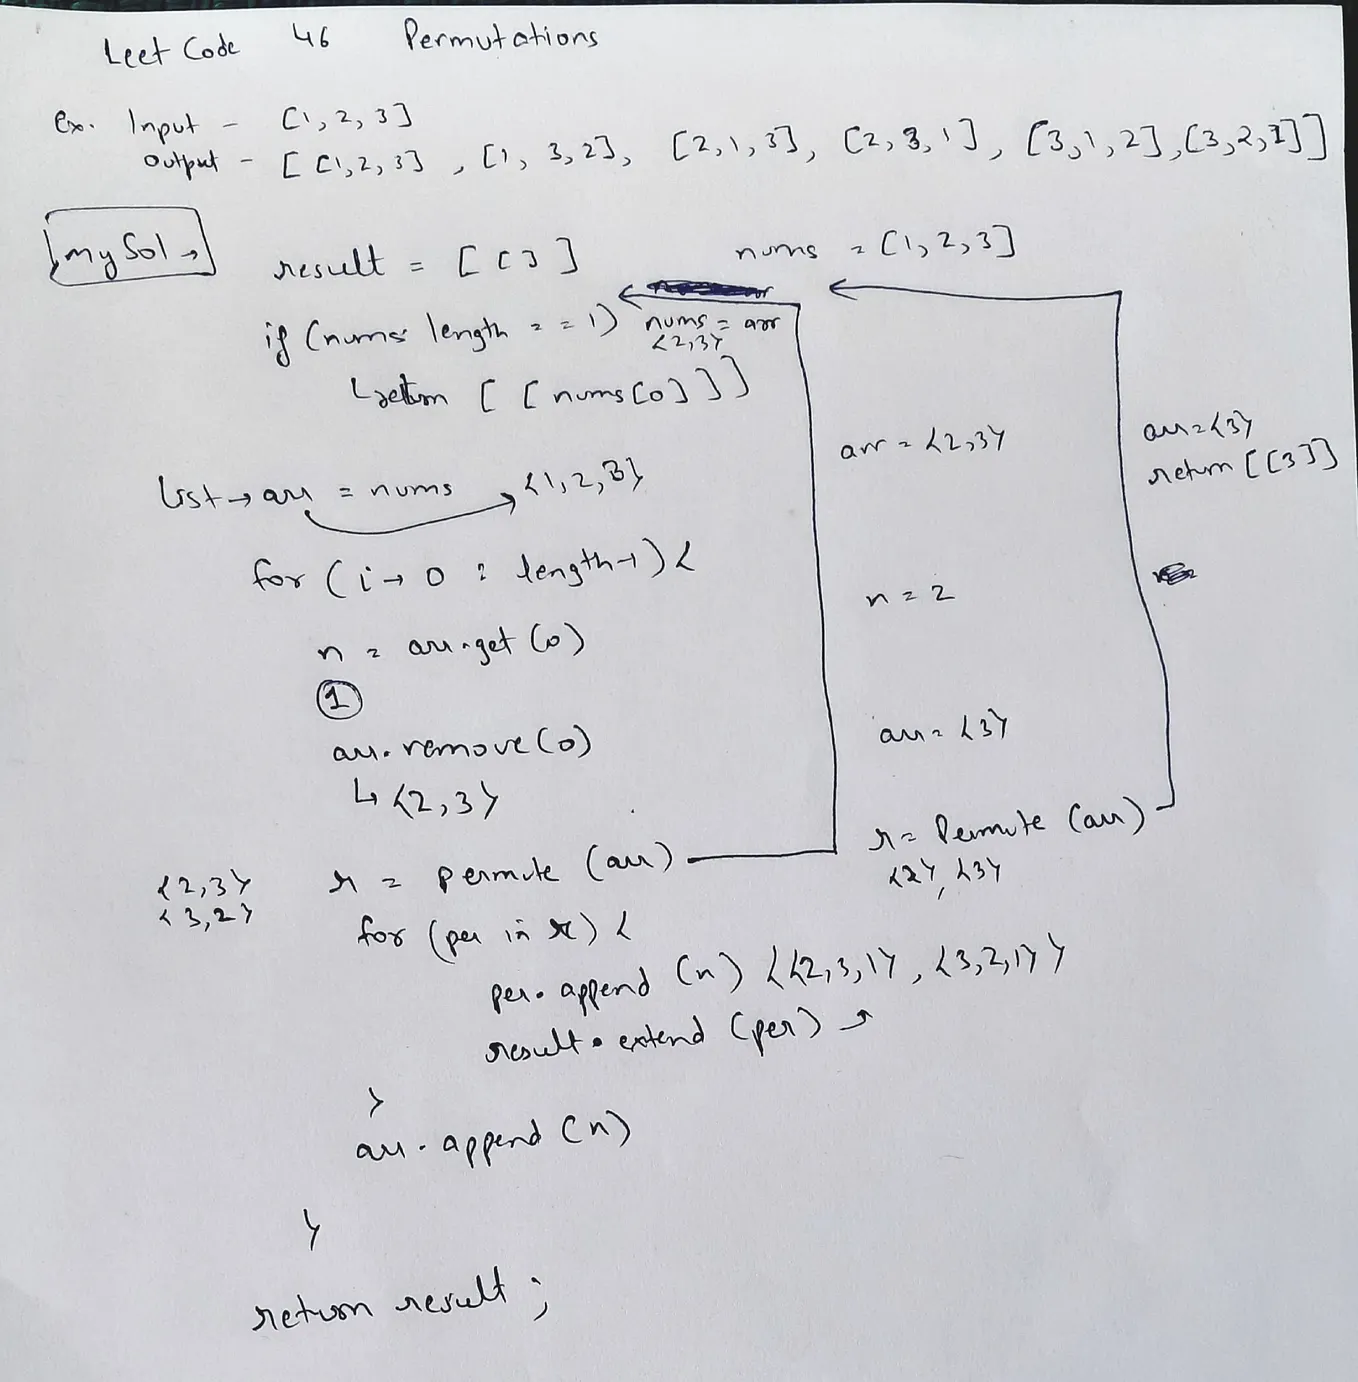 Leet Code 46 Permutations
Ex. Input - [1, 2, 3]
Output - [ [1,2,3] , [1, 3,2], [2,1,3], [2,3,1], [3,1,2],[3,2,1]]
my Sol →
result = [ [ ] ]
nums = [1,2,3]
if (nums length == 1)
nums = arr
{2,3}
↳ return [ [ nums[0] ] ]
List → arr = nums → {1,2,3}
for (i → 0 : length-1) {
n = arr.get (0)
①
arr.remove(0)
↳ {2,3}
r = permute (arr)
{2,3}
{3,2}
for (per in r) {
per.append (n) {{2,3,1}, {3,2,1}}
result.extend (per)
}
arr.append (n)
}
return result ;
arr = {2,3}
n = 2
arr = {3}
r = Permute (arr)
{2}, {3}
arr={3}
return [[3]]